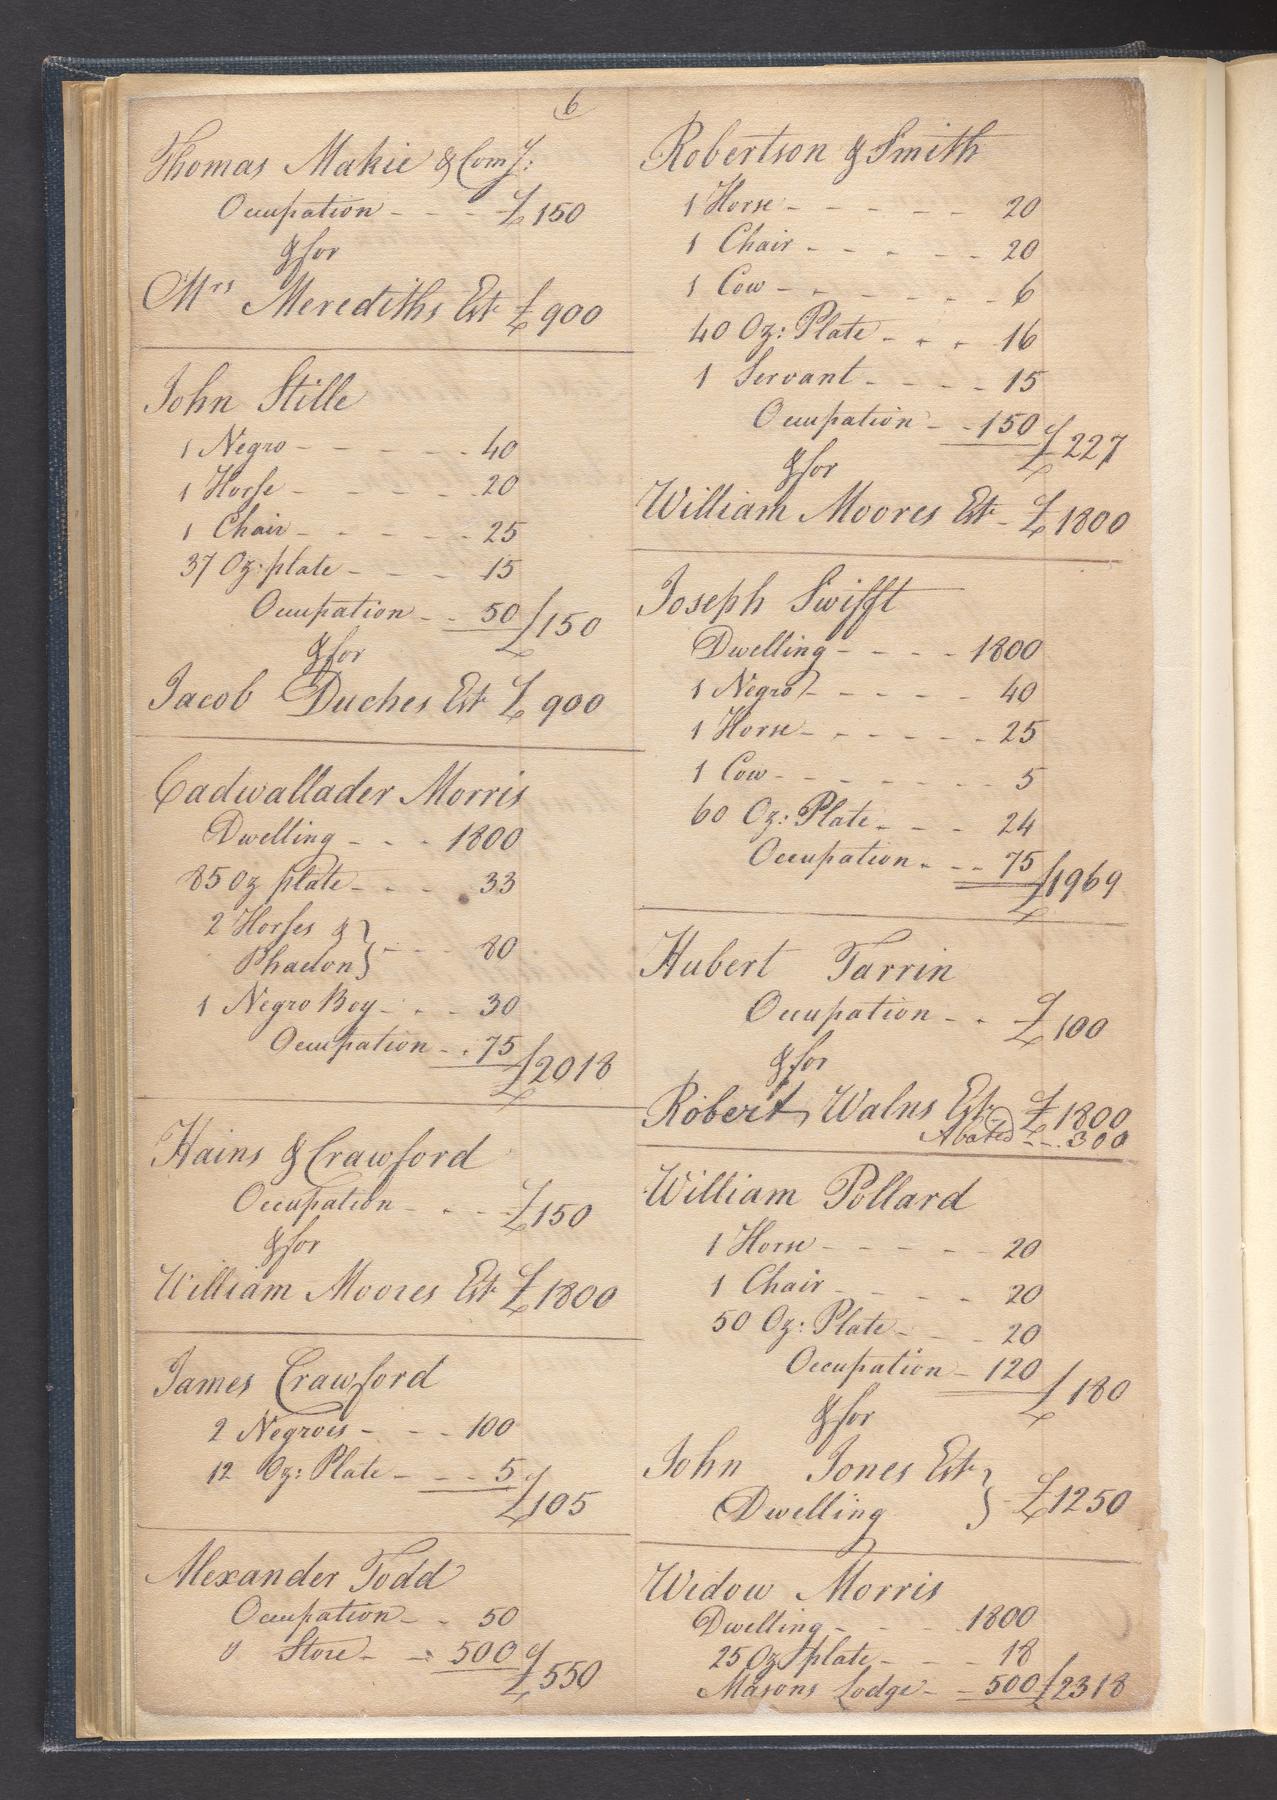 6
Thomas Makie & Comy:
Occupation - - - £150
& for
Mrs Merediths Est £900
John Stille
1 Negro - - - - - 40
1 Horse - - - - - 20
1 Chair - - - - - 25
37 Oz: plate - - - 15
Occupation - - 50 £150
& for
Jacob Duches Est £900
Cadwallader Morris
Dwelling - - - 1800
85 Oz plate - - - 33
2 Horses &
Phaeton } - - - 80
1 Negro Boy - - - 30
Occupation - - 75 £2018
Hains & Crawford
Occupation - - - £150
& for
William Moores Est £1800
James Crawford
2 Negrois - - - 100
12 Oz: Plate - - - 5
£105
Alexander Todd
Occupation - - 50
Store - - 500
£550
Robertson & Smith
1 Horse - - - - - 20
1 Chair - - - - - 20
1 Cow - - - - - - 6
40 Oz: Plate - - - 16
1 Servant - - - - 15
Occupation - - 150 £227
& for
William Moores Est - £1800
Joseph Swifft
Dwelling - - - - 1800
1 Negro - - - - - 40
1 Horse - - - - - 25
1 Cow - - - - - - 5
60 Oz: Plate - - - 24
Occupation - - - 75 £1969
Hubert Tarrin
Occupation - - £100
& for
Robert Walns Est - £1800
Abated - - 300
William Pollard
1 Horse - - - - - 20
1 Chair - - - - 20
50 Oz: Plate - - - 20
Occupation - 120 £180
& for
John Jones Est
Dwelling } - £1250
Widow Morris
Dwelling - - - 1800
25 Oz plate - - - 18
Masons Lodge - - 500 £2318